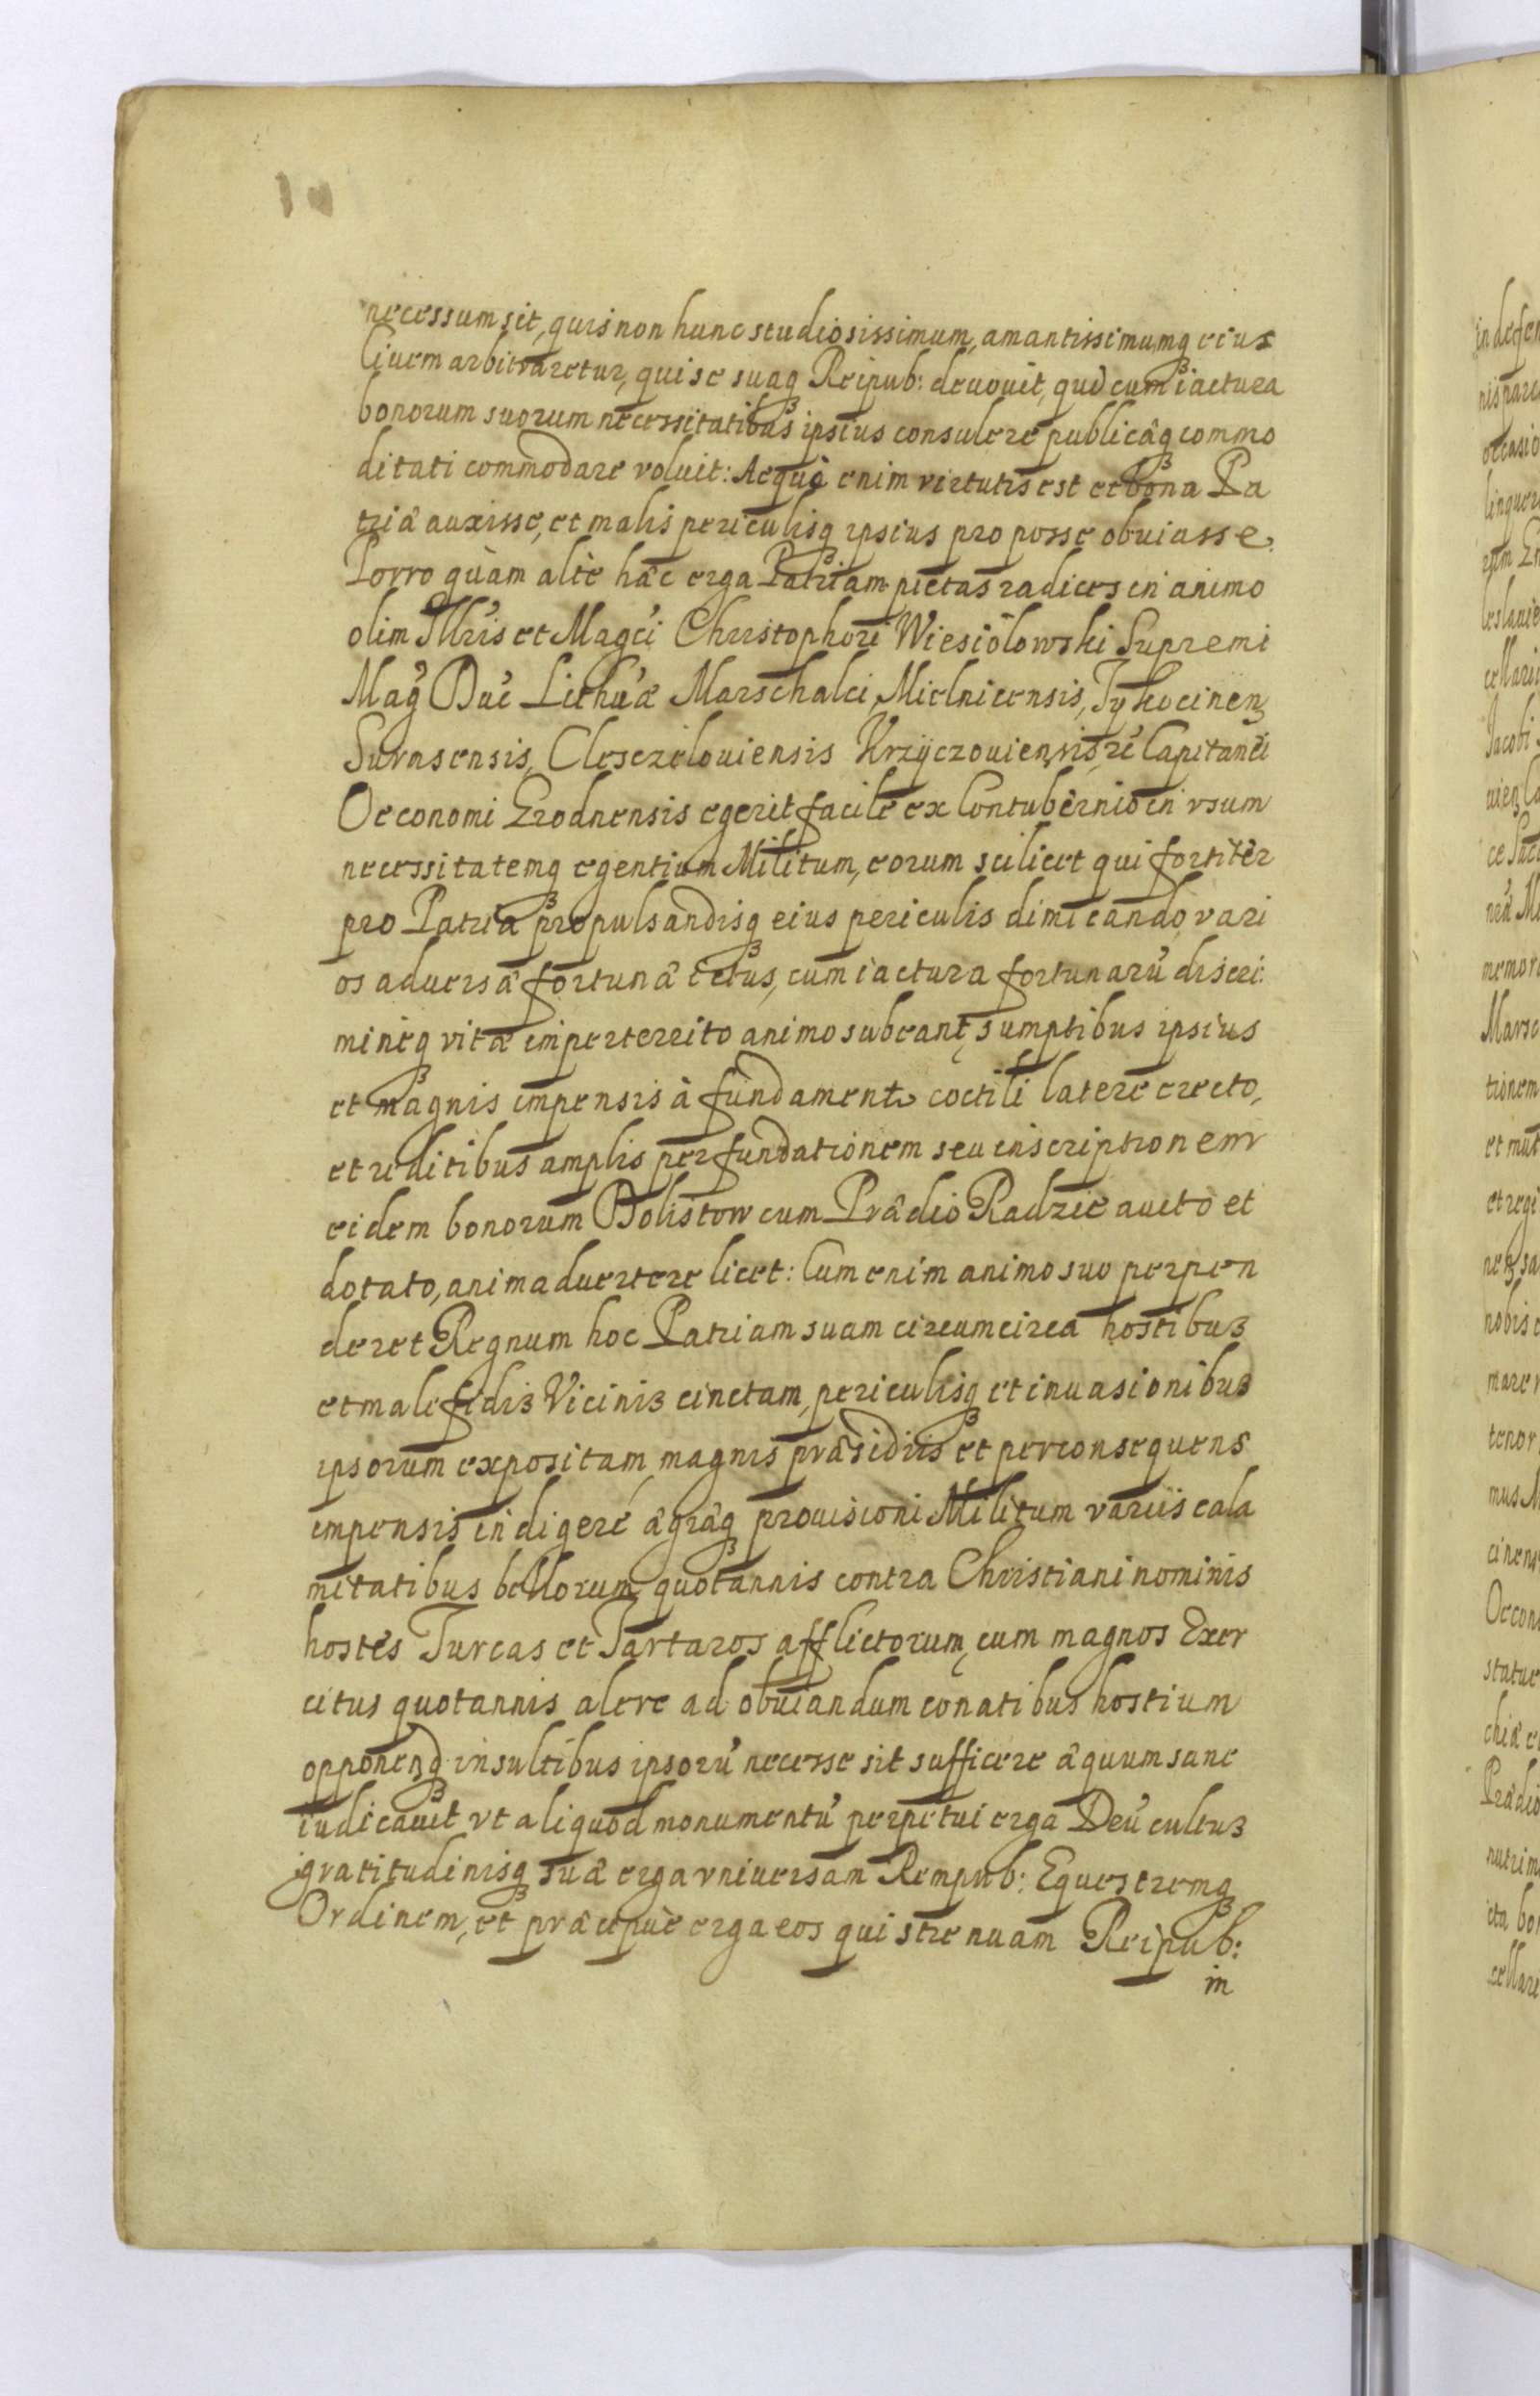 necessum sit, quis non hunc studiosissimum, amantissimumq₃ eius
Ciuem arbitraretur, qui se suaq₃ Reipub: deuouit, quò cum iactura
bonorum suorum necessitatibus ipsius consulere publicæq₃ commo
ditati commodare voluit: Aequè enim virtutis est et bona Pa
triæ auxisse, et malis periculisq₃ ipsius pro posse obuiasse.
Porro quàm altè hæc erga Patriam pietas radices in animo
olim Illr̃is et Magc̃i Christophori Wiesiołowski Supremi
Mag̃ Duc̃ Lithũæ Marschalci, Mielnicensis, Tykocinen₃
Surasensis, Clesczelouiensis Krzÿczouiensis, ꝛc̃ Capitanei
Oeconomi Grodnensis egerit facile ex Contubernio in vsum
necessitatemq₃ egentium Militum, eorum scilicet qui fortiter
pro Patria propulsandisq₃ eius periculis dimicando, vari
os aduersæ fortunæ ictus, cum iactura fortunarũ discri:
mineq₃ vitæ imperterrito animo subeant, sumptibus ipsius
et magnis impensis à fundamento coctili latere erecto,
et reditibus amplis per fundationem seu inscriptionem
eidem bonorum Dolistow cum Prædio Radzie aucto et
dotato, animaduertere licet: Cum enim animo suo perpen
deret Regnum hoc Patriam suam circumcirca hostibus
et malefidis Vicinis cinctam, periculisq₃ et inuasionibus
ipsorum expositam, magnis præsidiis et per consequens
impensis indigere ægræq₃ prouisioni Militum variis cala
mitatibus bellorum quotannis contra Christiani nominis
hostes Turcas et Tartaros afflictorum, cum magnos Exer
citus quotannis alere ad obuiandum conatibus hostium
opponendq₃ insultibus ipsorũ necesse sit sufficere æquum sane
iudicauit vt aliquod monumentũ perpetui erga Deũ cultus
gratitudinisq₃ suæ erga vniuersam Rempub: Equestremq₃
Ordinem, et præcipuè erga eos qui strenuam Reipub:
in